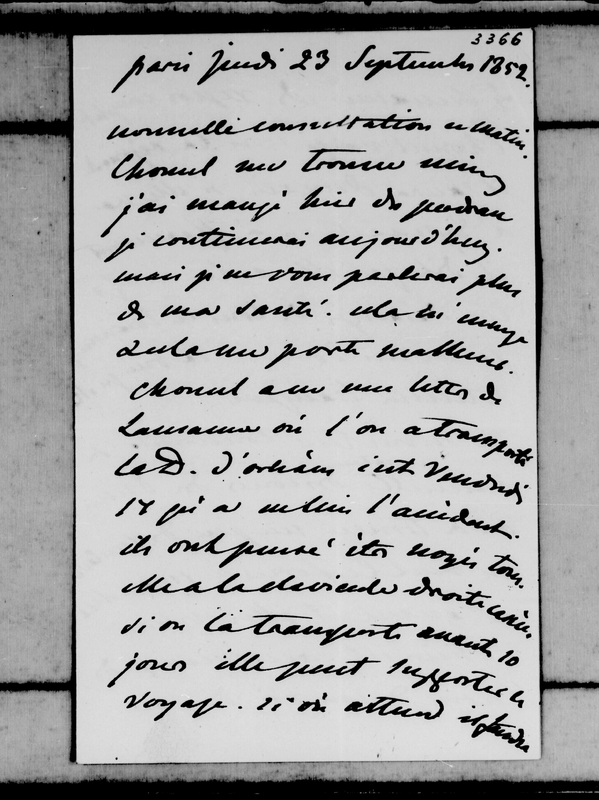 3366
Paris jeudi 23 Septembre 1852.
nouvelle consultation ce matin.
Chomel me trouve mieux
j'ai mangé hier du perdreau
je continuerai aujourd'huy.
mais je ne vous parlerai plus
de ma santé. cela m'ennuye
& cela me porte malheur.
Chomel a eu une lettre de
Lausanne où l'on a transporté
la D. d'orléans c'est Vendredi
17 qu'a eu lieu l'accident.
ils ont pensé être noyés tous.
elle a la clavicule droite cassée.
si on la transporte avant 10
jours elle peut supporter le
voyage. si on attend il faudra